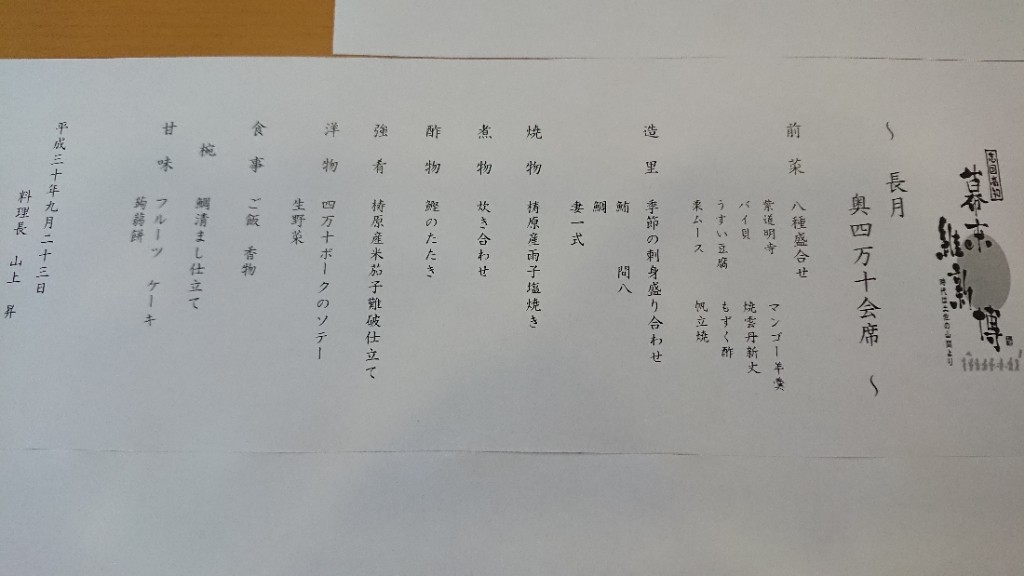 志国高知
幕末
維新博
時代は土佐の山間より
～ 長月
奥四万十会席 ～
前菜 八種盛合せ
マンゴー羊羹
紫道明寺 焼雲丹新丈
バイ貝 もずく酢
うすい豆腐 帆立焼
栗ムース
造里 季節の刺身盛り合わせ
鮪 間八
鯛
妻一式
焼物 梼原産雨子塩焼き
煮物 炊き合わせ
酢物 鰹のたたき
強肴 梼原産米茄子難破仕立て
洋物 四万十ポークのソテー
生野菜
食事 ご飯 香物
椀 鯛清まし仕立て
甘味 フルーツ ケーキ
蒟蒻餅
平成三十年九月二十三日
料理長 山上 昇